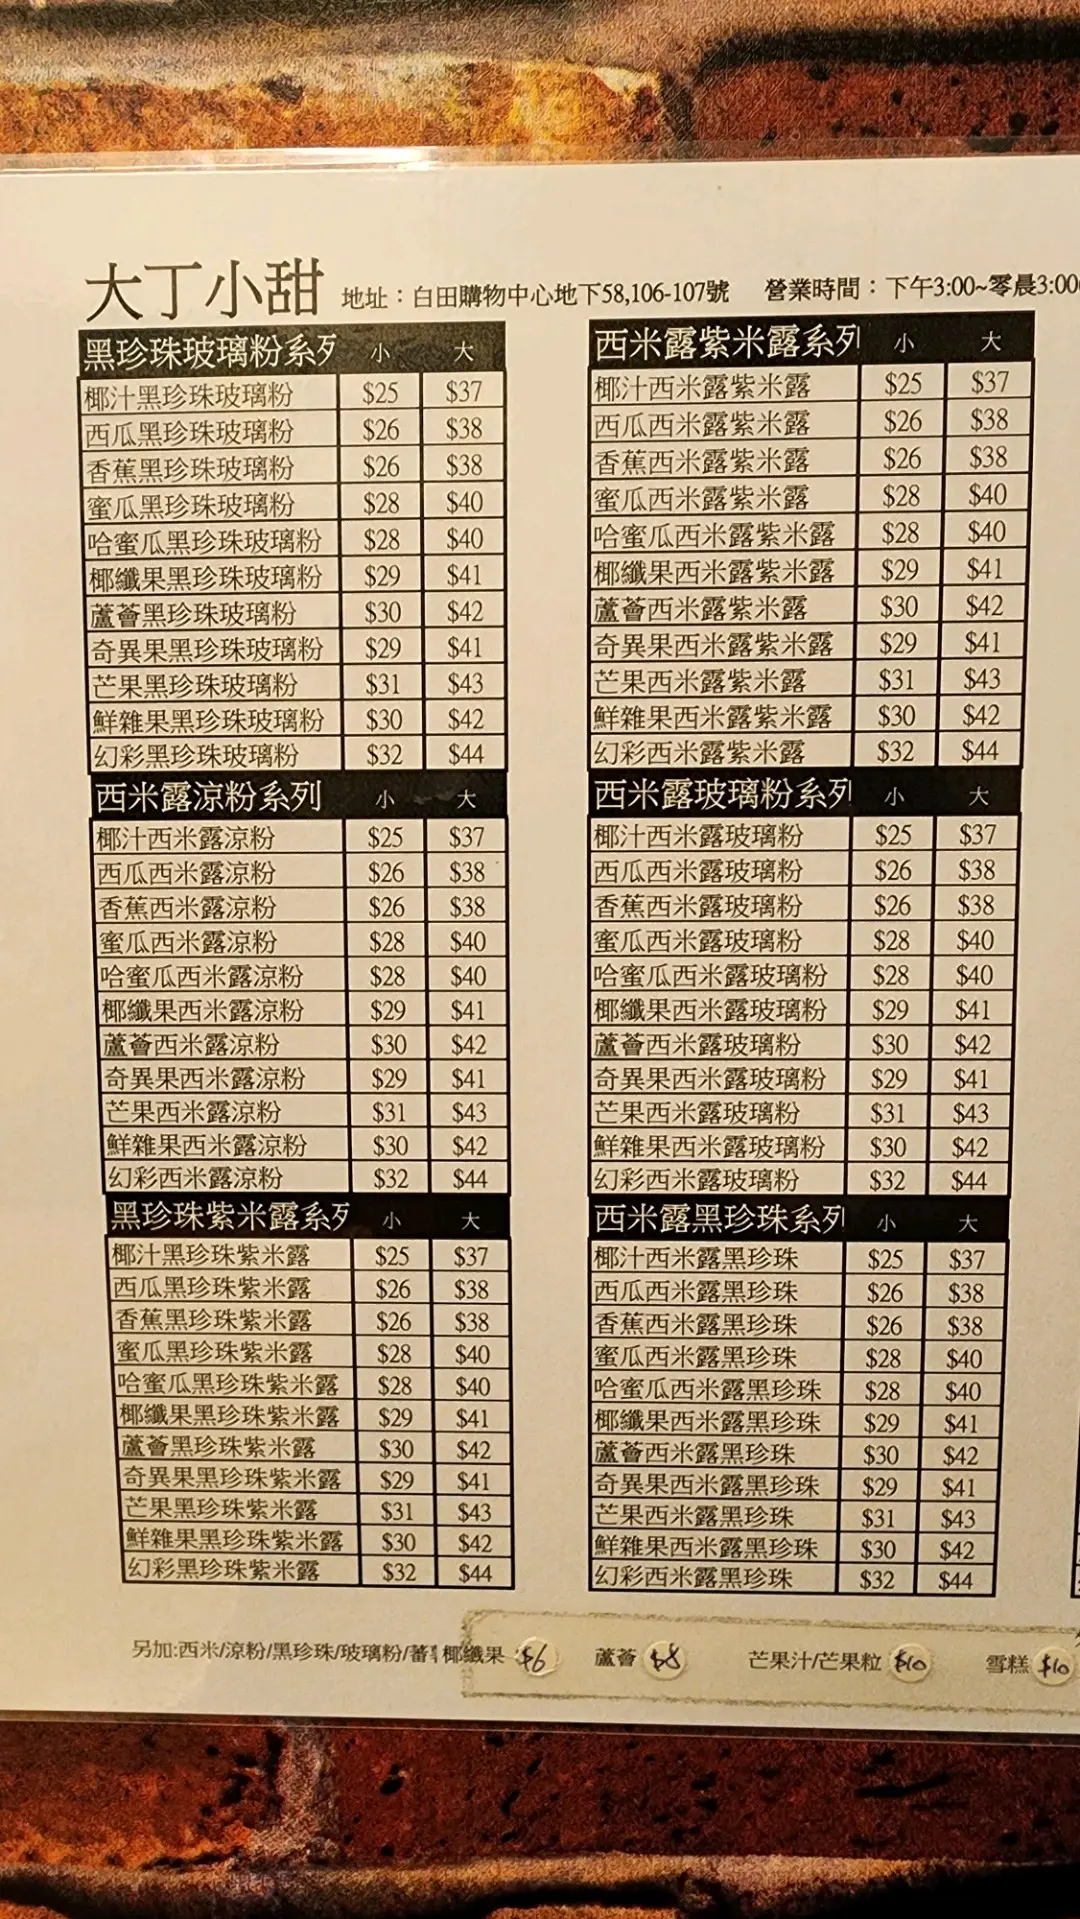 大丁小甜 地址：白田購物中心地下58,106-107號 營業時間：下午3:00~零晨3:00
黑珍珠玻璃粉系列 小 大
椰汁黑珍珠玻璃粉 $25 $37
西瓜黑珍珠玻璃粉 $26 $38
香蕉黑珍珠玻璃粉 $26 $38
蜜瓜黑珍珠玻璃粉 $28 $40
哈蜜瓜黑珍珠玻璃粉 $28 $40
椰纖果黑珍珠玻璃粉 $29 $41
蘆薈黑珍珠玻璃粉 $30 $42
奇異果黑珍珠玻璃粉 $29 $41
芒果黑珍珠玻璃粉 $31 $43
鮮雜果黑珍珠玻璃粉 $30 $42
幻彩黑珍珠玻璃粉 $32 $44
西米露涼粉系列 小 大
椰汁西米露涼粉 $25 $37
西瓜西米露涼粉 $26 $38
香蕉西米露涼粉 $26 $38
蜜瓜西米露涼粉 $28 $40
哈蜜瓜西米露涼粉 $28 $40
椰纖果西米露涼粉 $29 $41
蘆薈西米露涼粉 $30 $42
奇異果西米露涼粉 $29 $41
芒果西米露涼粉 $31 $43
鮮雜果西米露涼粉 $30 $42
幻彩西米露涼粉 $32 $44
黑珍珠紫米露系列 小 大
椰汁黑珍珠紫米露 $25 $37
西瓜黑珍珠紫米露 $26 $38
香蕉黑珍珠紫米露 $26 $38
蜜瓜黑珍珠紫米露 $28 $40
哈蜜瓜黑珍珠紫米露 $28 $40
椰纖果黑珍珠紫米露 $29 $41
蘆薈黑珍珠紫米露 $30 $42
奇異果黑珍珠紫米露 $29 $41
芒果黑珍珠紫米露 $31 $43
鮮雜果黑珍珠紫米露 $30 $42
幻彩黑珍珠紫米露 $32 $44
西米露紫米露系列 小 大
椰汁西米露紫米露 $25 $37
西瓜西米露紫米露 $26 $38
香蕉西米露紫米露 $26 $38
蜜瓜西米露紫米露 $28 $40
哈蜜瓜西米露紫米露 $28 $40
椰纖果西米露紫米露 $29 $41
蘆薈西米露紫米露 $30 $42
奇異果西米露紫米露 $29 $41
芒果西米露紫米露 $31 $43
鮮雜果西米露紫米露 $30 $42
幻彩西米露紫米露 $32 $44
西米露玻璃粉系列 小 大
椰汁西米露玻璃粉 $25 $37
西瓜西米露玻璃粉 $26 $38
香蕉西米露玻璃粉 $26 $38
蜜瓜西米露玻璃粉 $28 $40
哈蜜瓜西米露玻璃粉 $28 $40
椰纖果西米露玻璃粉 $29 $41
蘆薈西米露玻璃粉 $30 $42
奇異果西米露玻璃粉 $29 $41
芒果西米露玻璃粉 $31 $43
鮮雜果西米露玻璃粉 $30 $42
幻彩西米露玻璃粉 $32 $44
西米露黑珍珠系列 小 大
椰汁西米露黑珍珠 $25 $37
西瓜西米露黑珍珠 $26 $38
香蕉西米露黑珍珠 $26 $38
蜜瓜西米露黑珍珠 $28 $40
哈蜜瓜西米露黑珍珠 $28 $40
椰纖果西米露黑珍珠 $29 $41
蘆薈西米露黑珍珠 $30 $42
奇異果西米露黑珍珠 $29 $41
芒果西米露黑珍珠 $31 $43
鮮雜果西米露黑珍珠 $30 $42
幻彩西米露黑珍珠 $32 $44
另加:西米/涼粉/黑珍珠/玻璃粉/ 椰纖果 $6 蘆薈 $8 芒果汁/芒果粒 $10 雪糕 $10